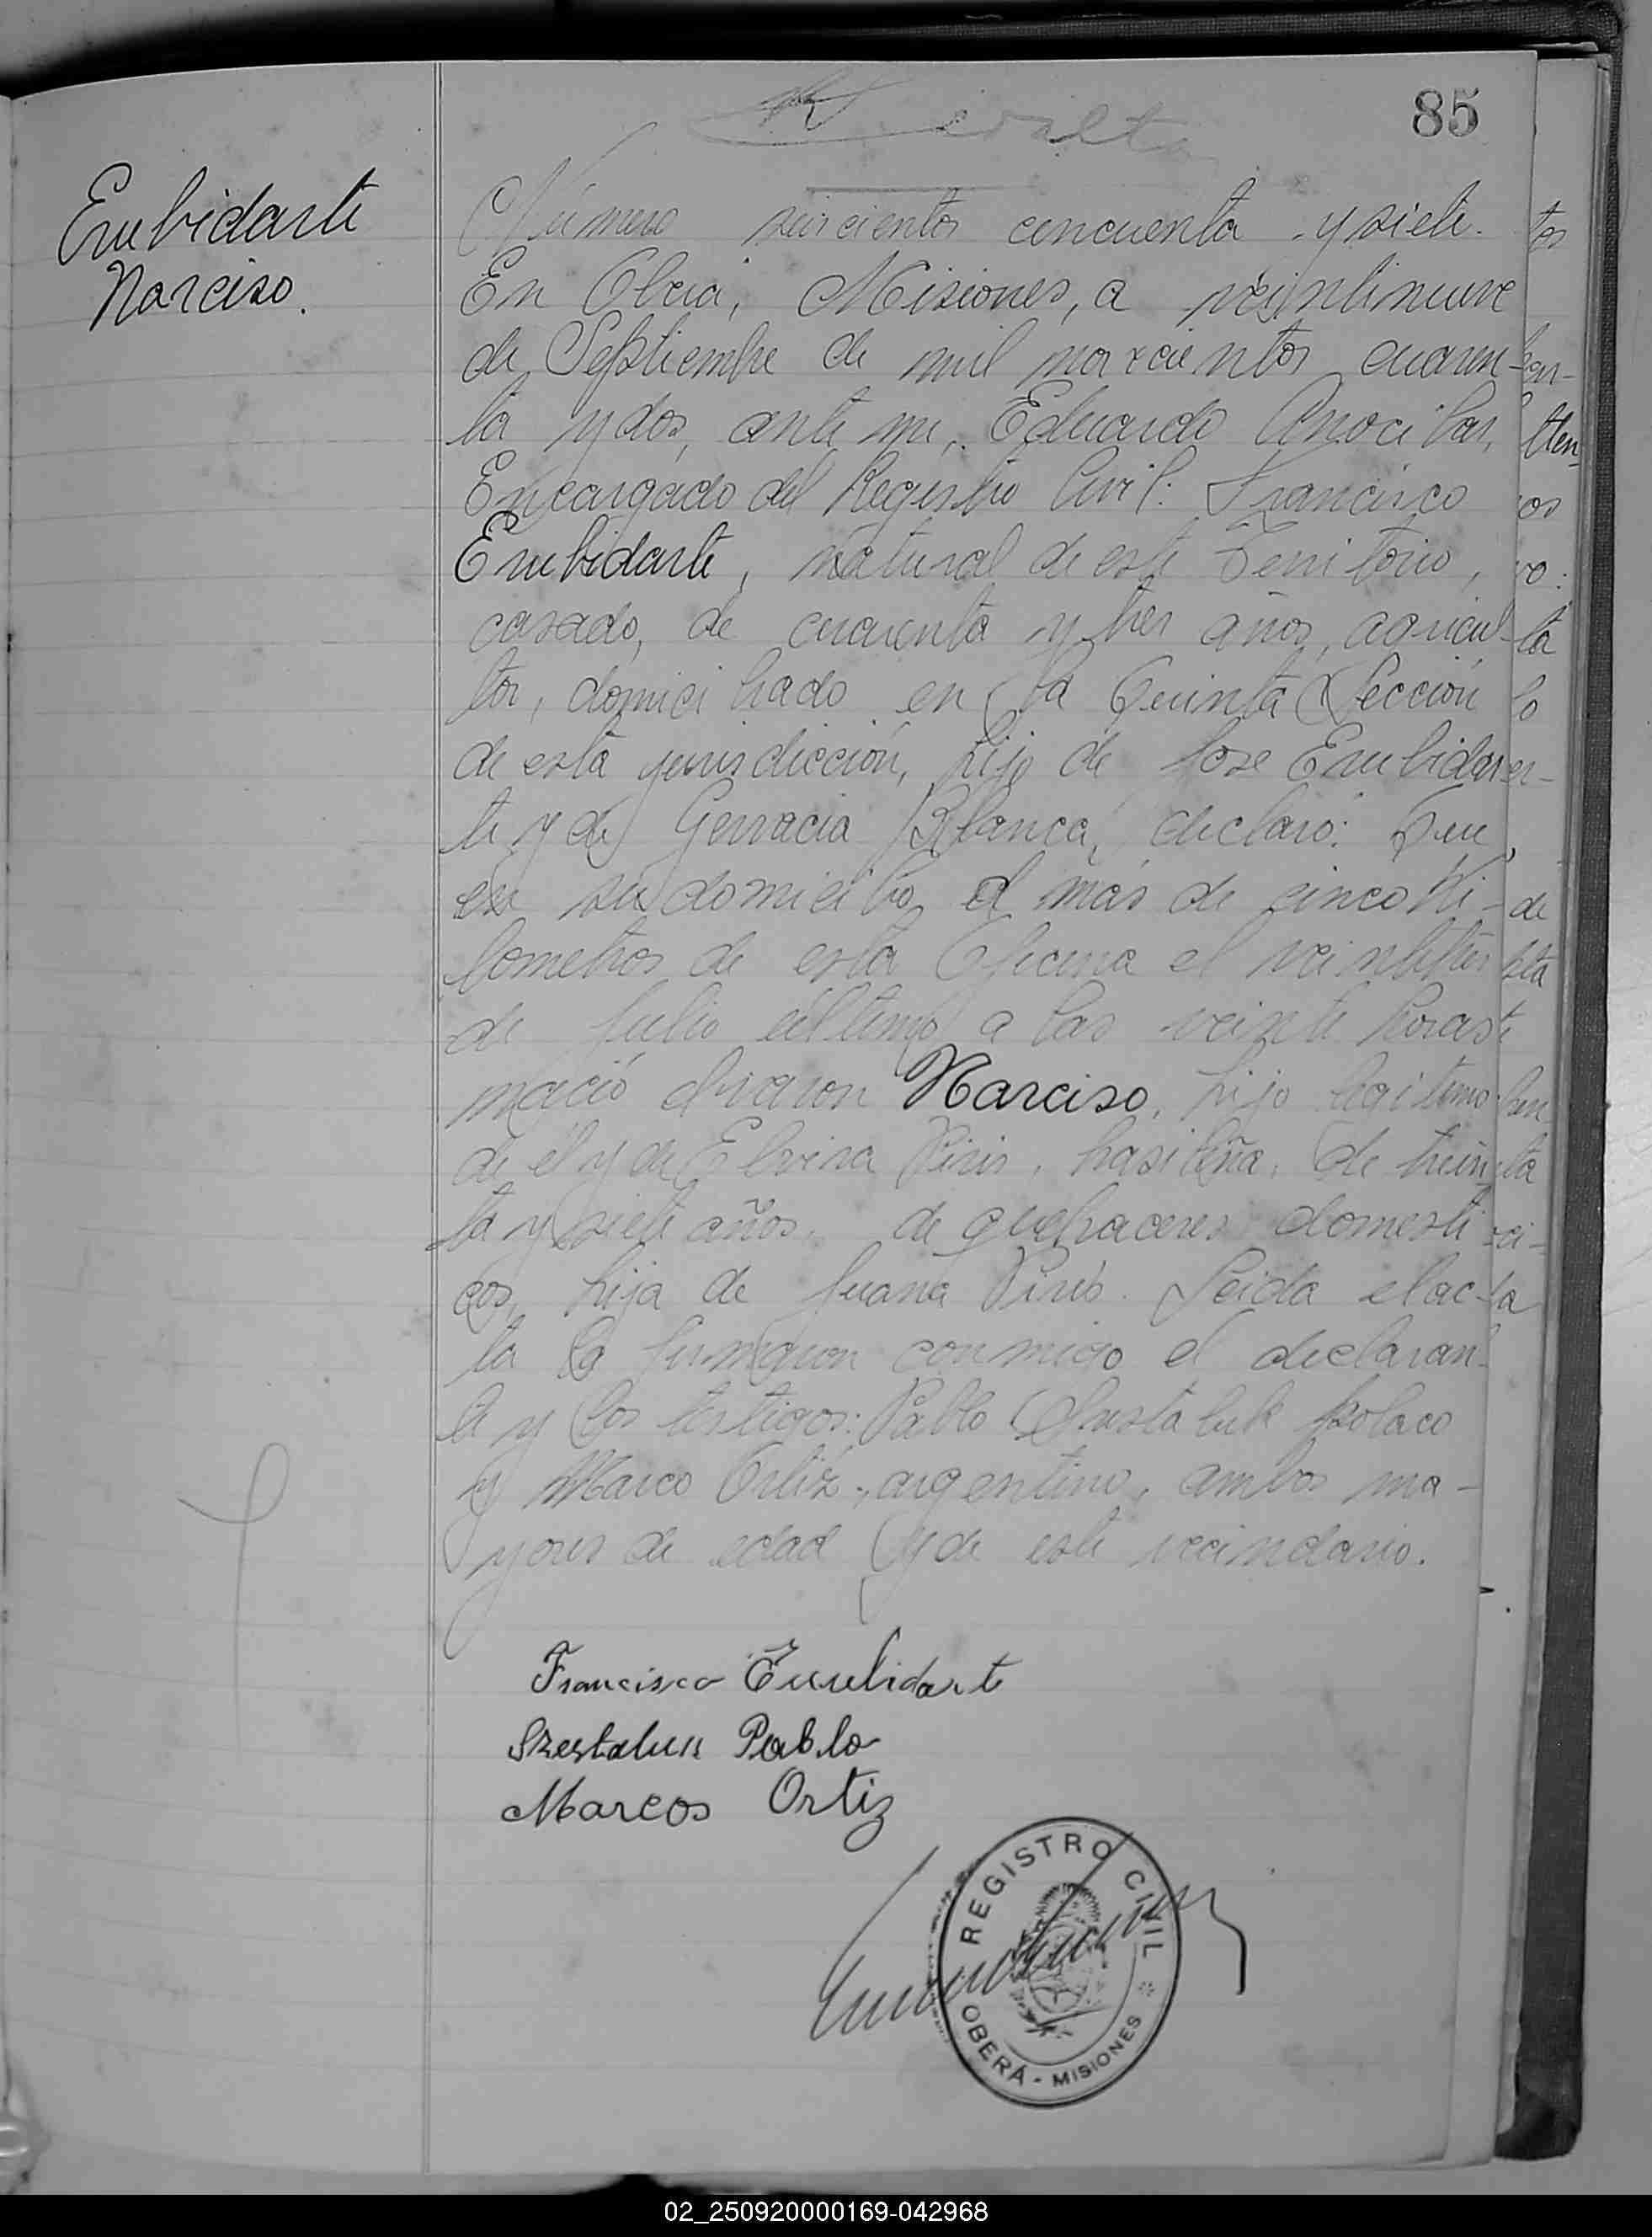 85
Erubidarte
Narciso.
Número seiscientos cincuenta y siete.
En Oberá, Misiones, a veintinueve
de Septiembre de mil novecientos cuaren-
ta y dos, ante mi, Eduardo
Encargado del Registro Civil: Francisco
Erubidarte, natural de este Territorio,
casado, de cuarenta y tres años, agricul-
tor, domiciliado en la Quinta Sección
de esta jurisdicción, hijo de Jose Erubidar
te y de Gervacia Blanca, declaró: Que
en su domicilio a más de cinco Ki-
lometros de esta Oficina el veintitres
de Julio último a las veinte horas
nació el varon Narciso, hijo legitimo
de él y de Elvira Piris, brasileña, de trein
ta y siete años, de quehaceres domesti
cos, hija de Juana Piris. Leida el ac-
ta la firmaron conmigo el declaran-
te y los testigos: Pablo polaco
y Marco Ortiz, argentino, ambos ma-
yores de edad y de este vecindario.
Francisco Erubidarte
Pablo
Marcos Ortiz
REGISTRO CIVIL
OBERÁ - MISIONES
02_250920000169-042968